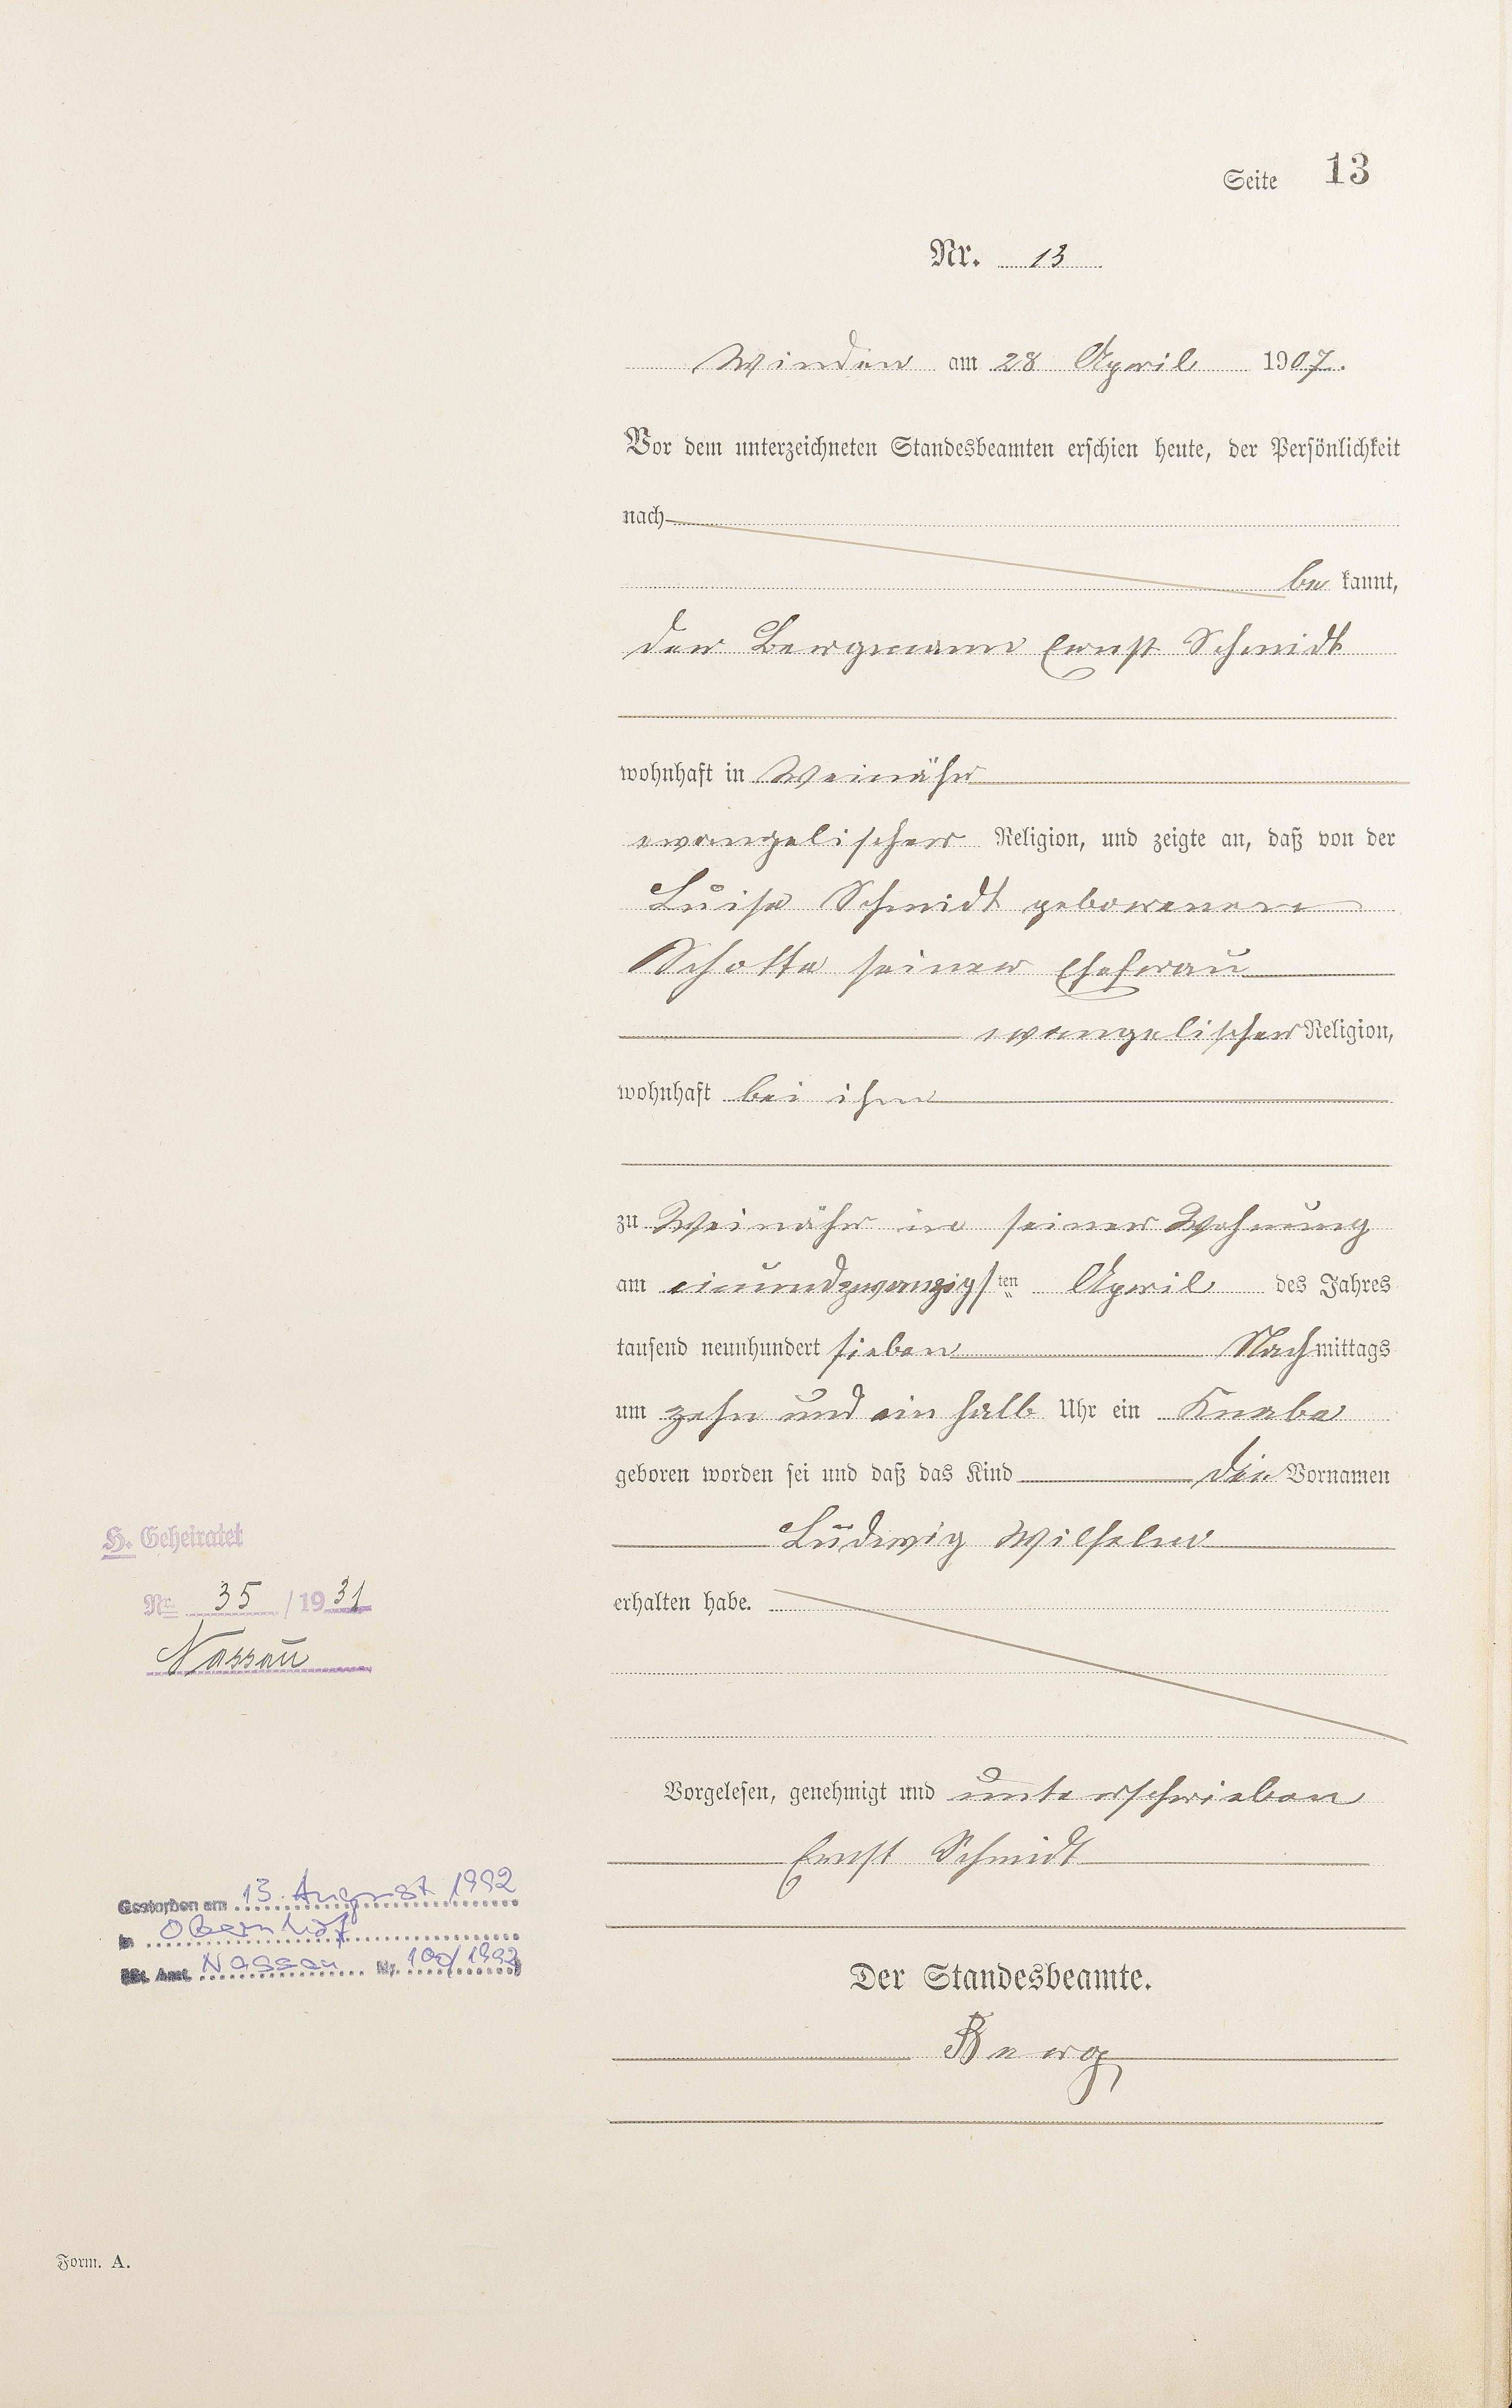 Seite 13
Nr. 13
Winden am 28 April 1907.
Vor dem unterzeichneten Standesbeamten erschien heute, der Persönlichkeit
nach
be kannt,
der Bergmann Ernst Schmidt
wohnhaft in Weinähr
evangelischer Religion, und zeigte an, daß von der
Luise Schmidt geborenene
Schotte seiner Ehefrau
evangelischer Religion,
wohnhaft bei ihm
zu Weinähr in seiner Wohnung
am einundzwanzigsten April des Jahres
tausend neunhundert sieben Nachmittags
um zehn und ein halb Uhr ein Knabe
geboren worden sei und daß das Kind die Vornamen
Ludwig Wilhelm
erhalten habe.
Vorgelesen, genehmigt und unterschrieben
Ernst Schmidt
Der Standesbeamte.
Berg
H. Geheiratet
Nr. 35 / 1931
Nassau
Gestorben am 13. August 1992
in Obernhof
St. Amt. Nassau Nr. 100/1992
Form. A.